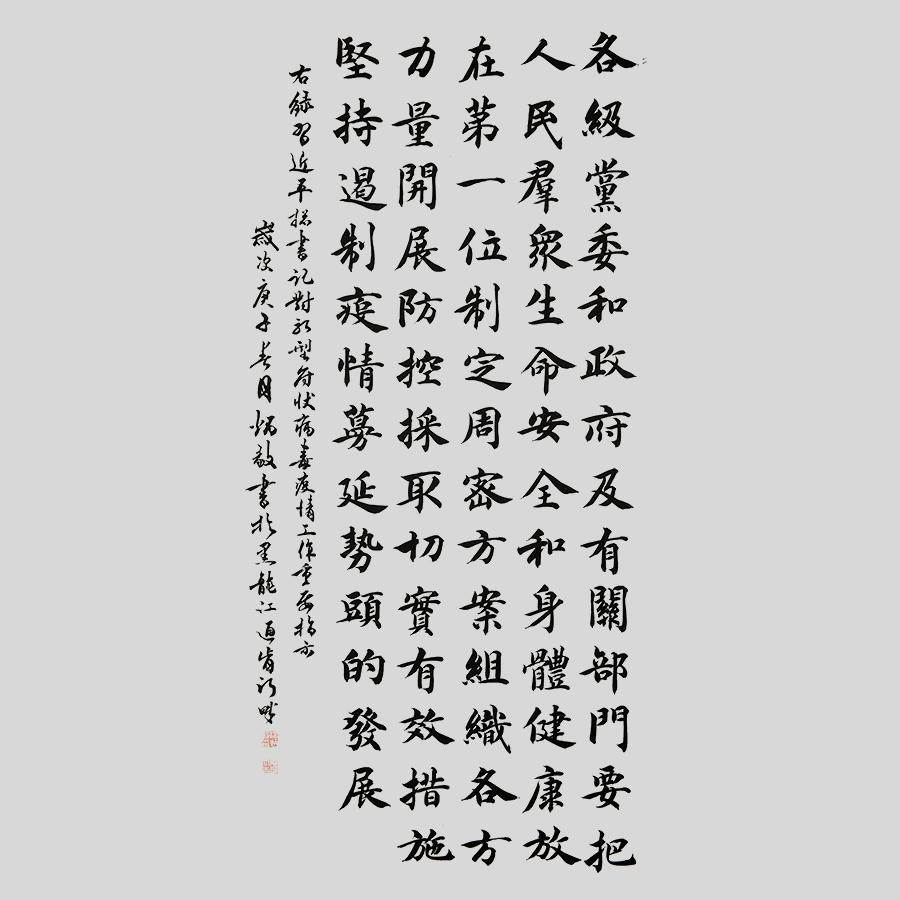 各級黨委和政府及有關部門要把
人民羣眾生命安全和身體健康放
在第一位制定周密方案組織各方
力量開展防控採取切實有效措施
堅持遏制疫情蔓延勢頭的發展
右錄習近平總書記對新型冠狀病毒疫情工作重要指示
歲次庚子春月炳書於黑龍江通肯河畔